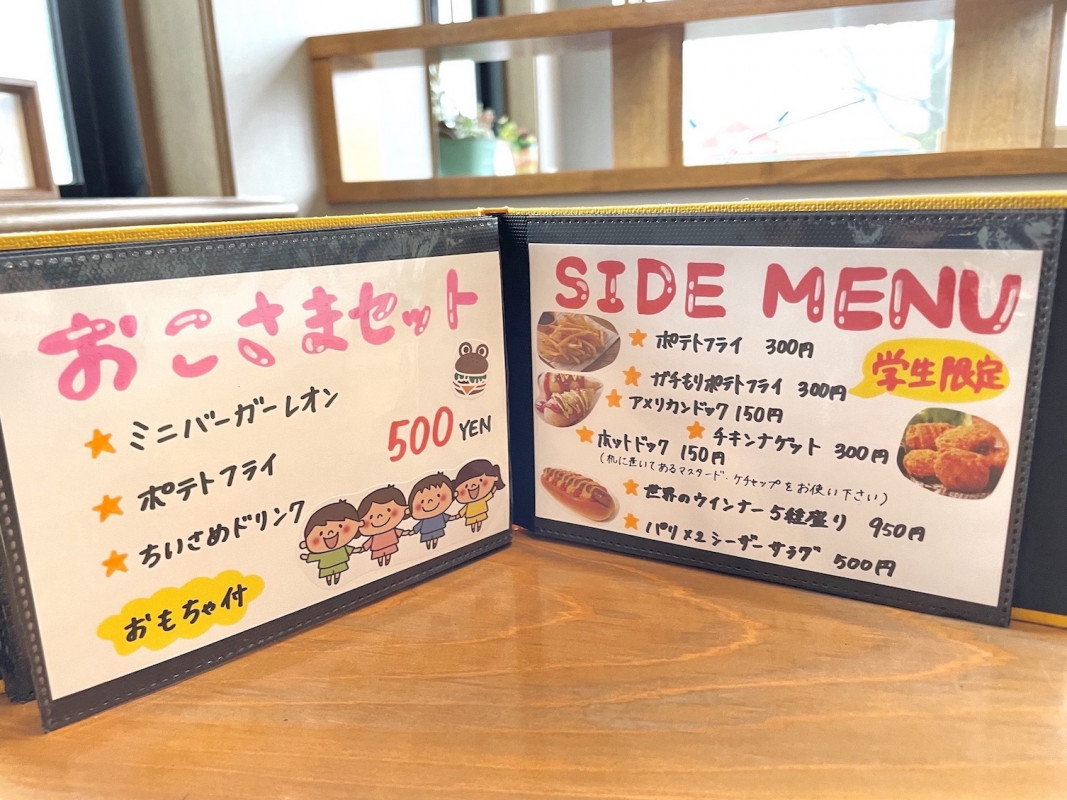 おこさまセット
ミニバーガーレオン
500 YEN
ポテトフライ
ちいさめドリンク
おもちゃ付
SIDE MENU
ポテトフライ 300円
ガチもりポテトフライ 300円
学生限定
アメリカンドック 150円
チキンナゲット 300円
ホットドック 150円
(机に置いてあるマスタード・ケチャップをお使い下さい)
世界のウインナー5種盛り 950円
パリ×2シーザーサラダ 500円